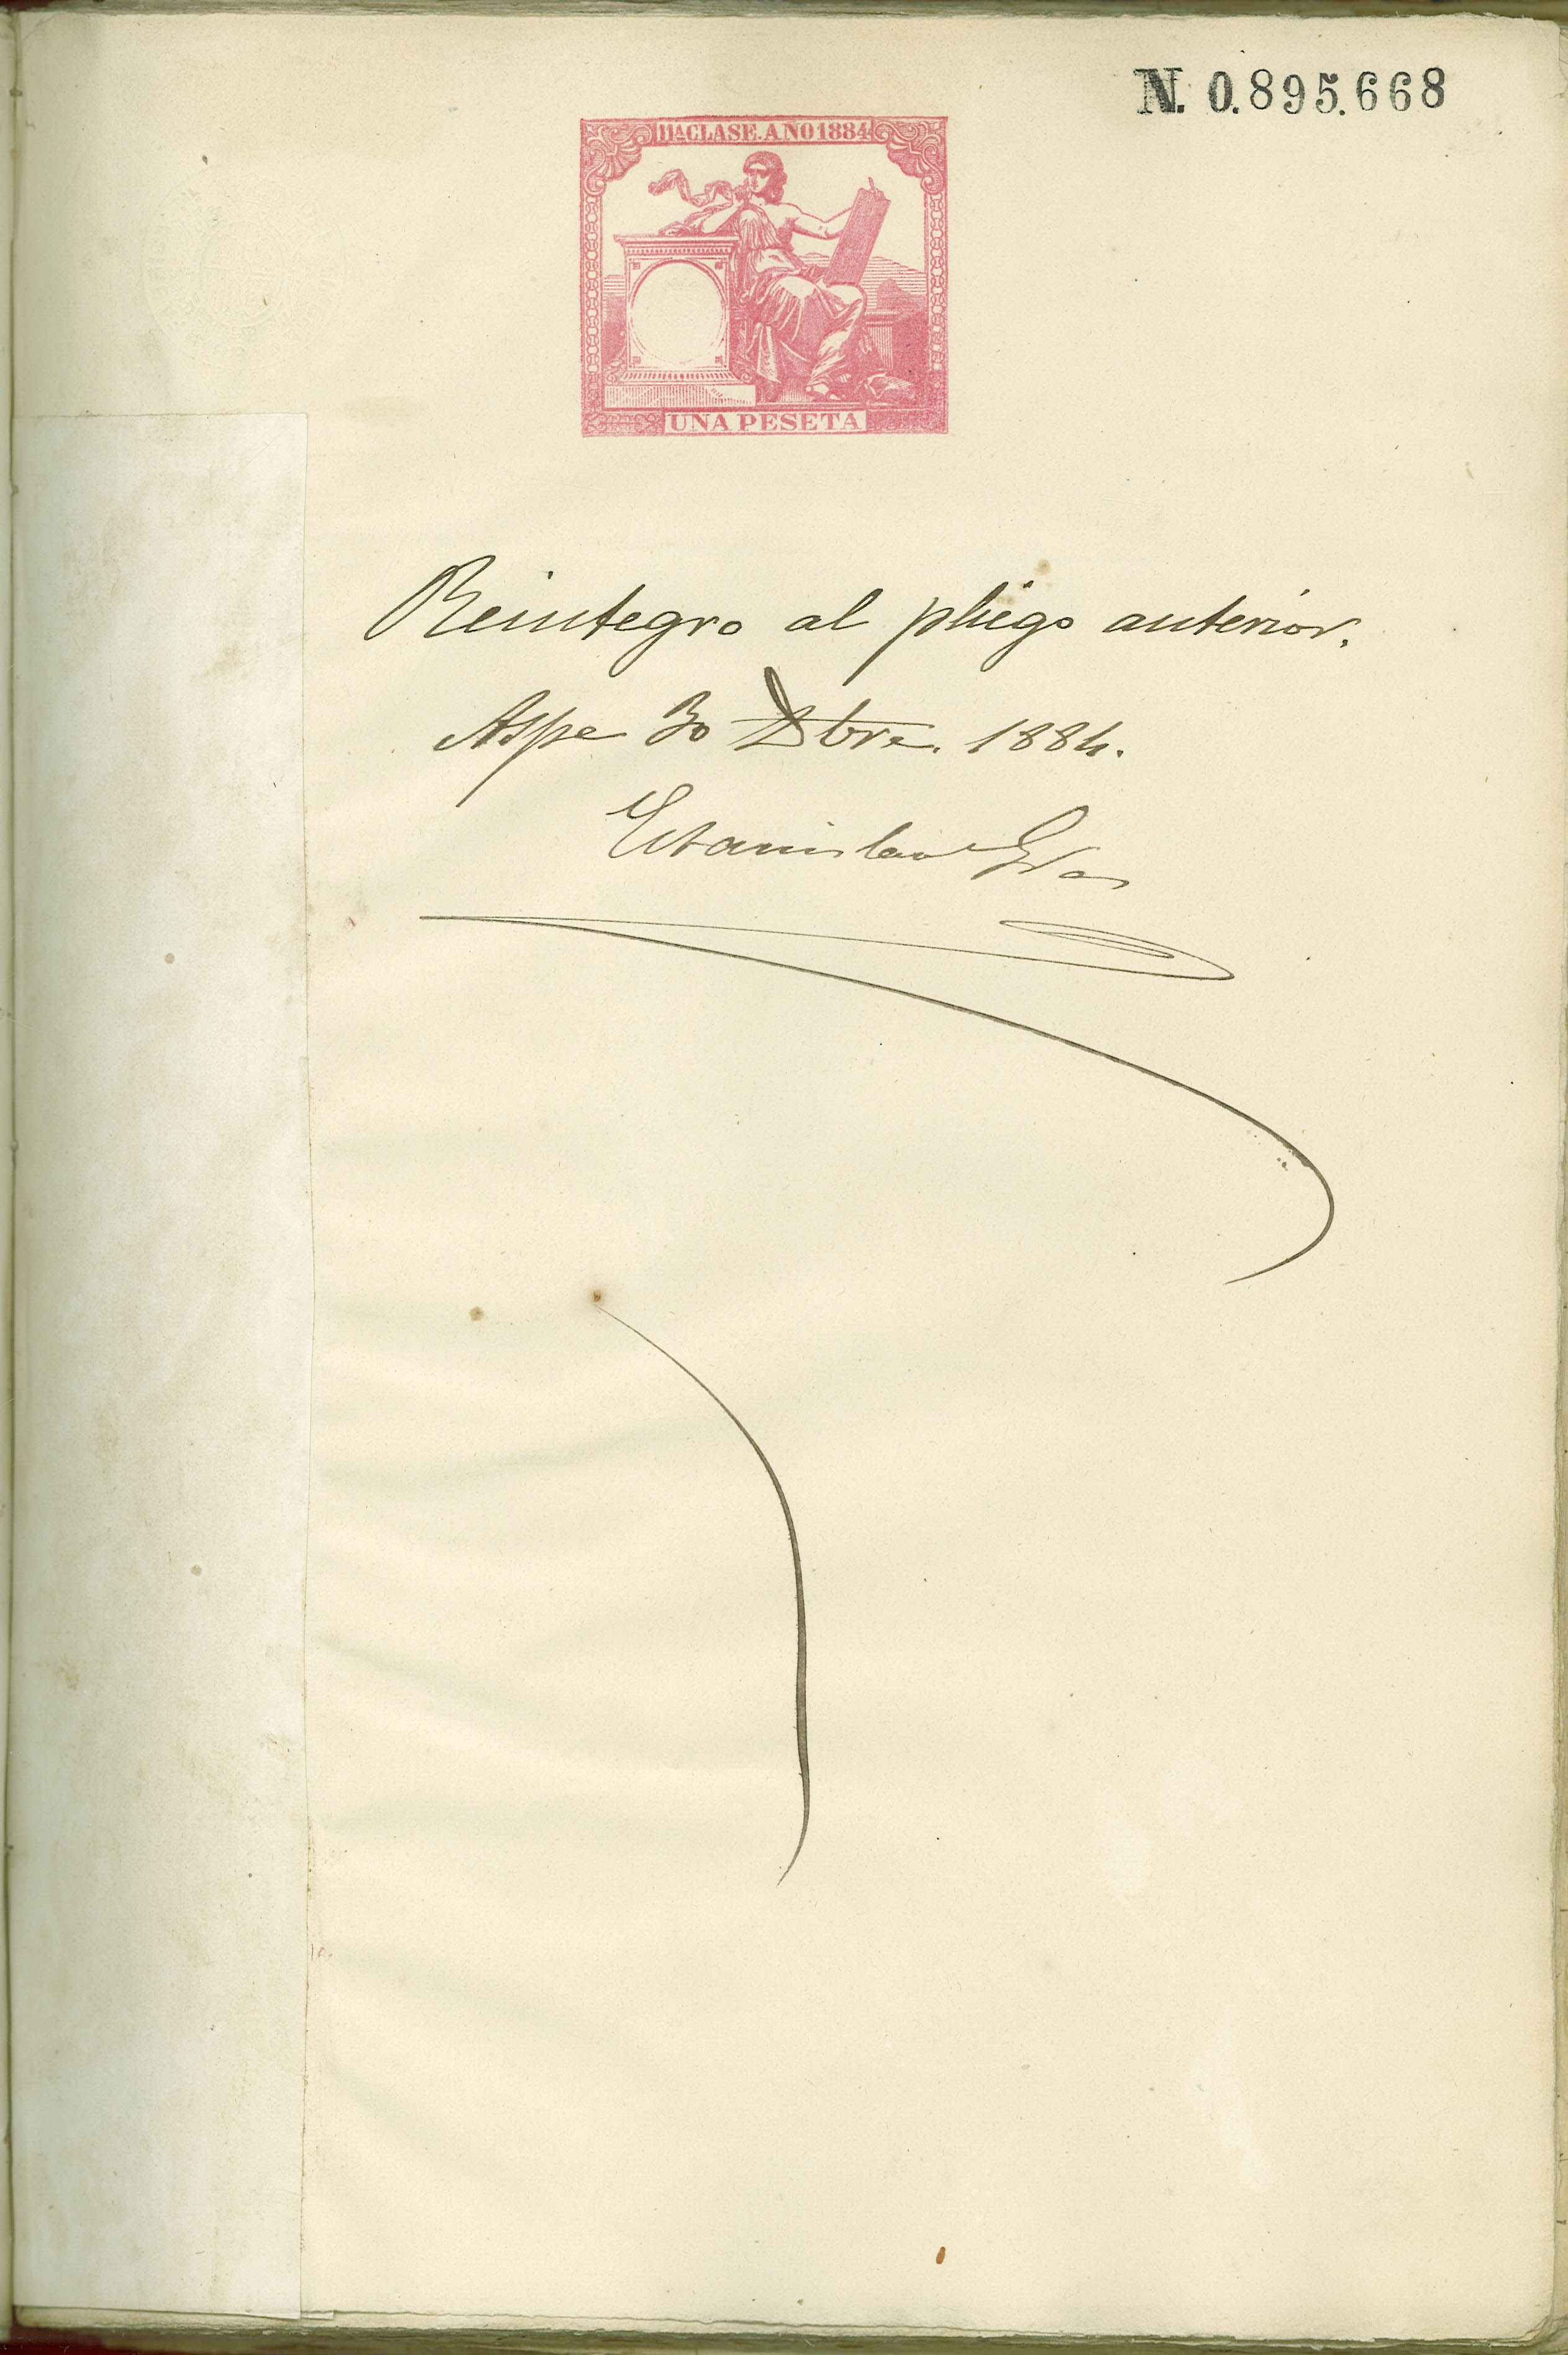 N. 0.895.668
11ª CLASE. AÑO 1884
UNA PESETA
Reintegro al pliego anterior.
Aspe 30 Dbre. 1884.
Estanislao Gras